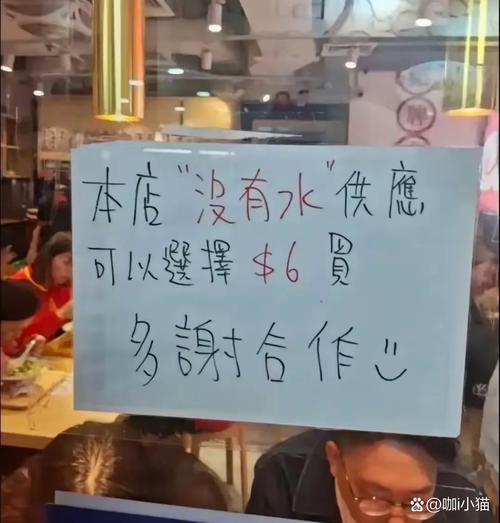 本店"沒有水"供應
可以選擇 $6 買
多謝合作
@咖i小猫